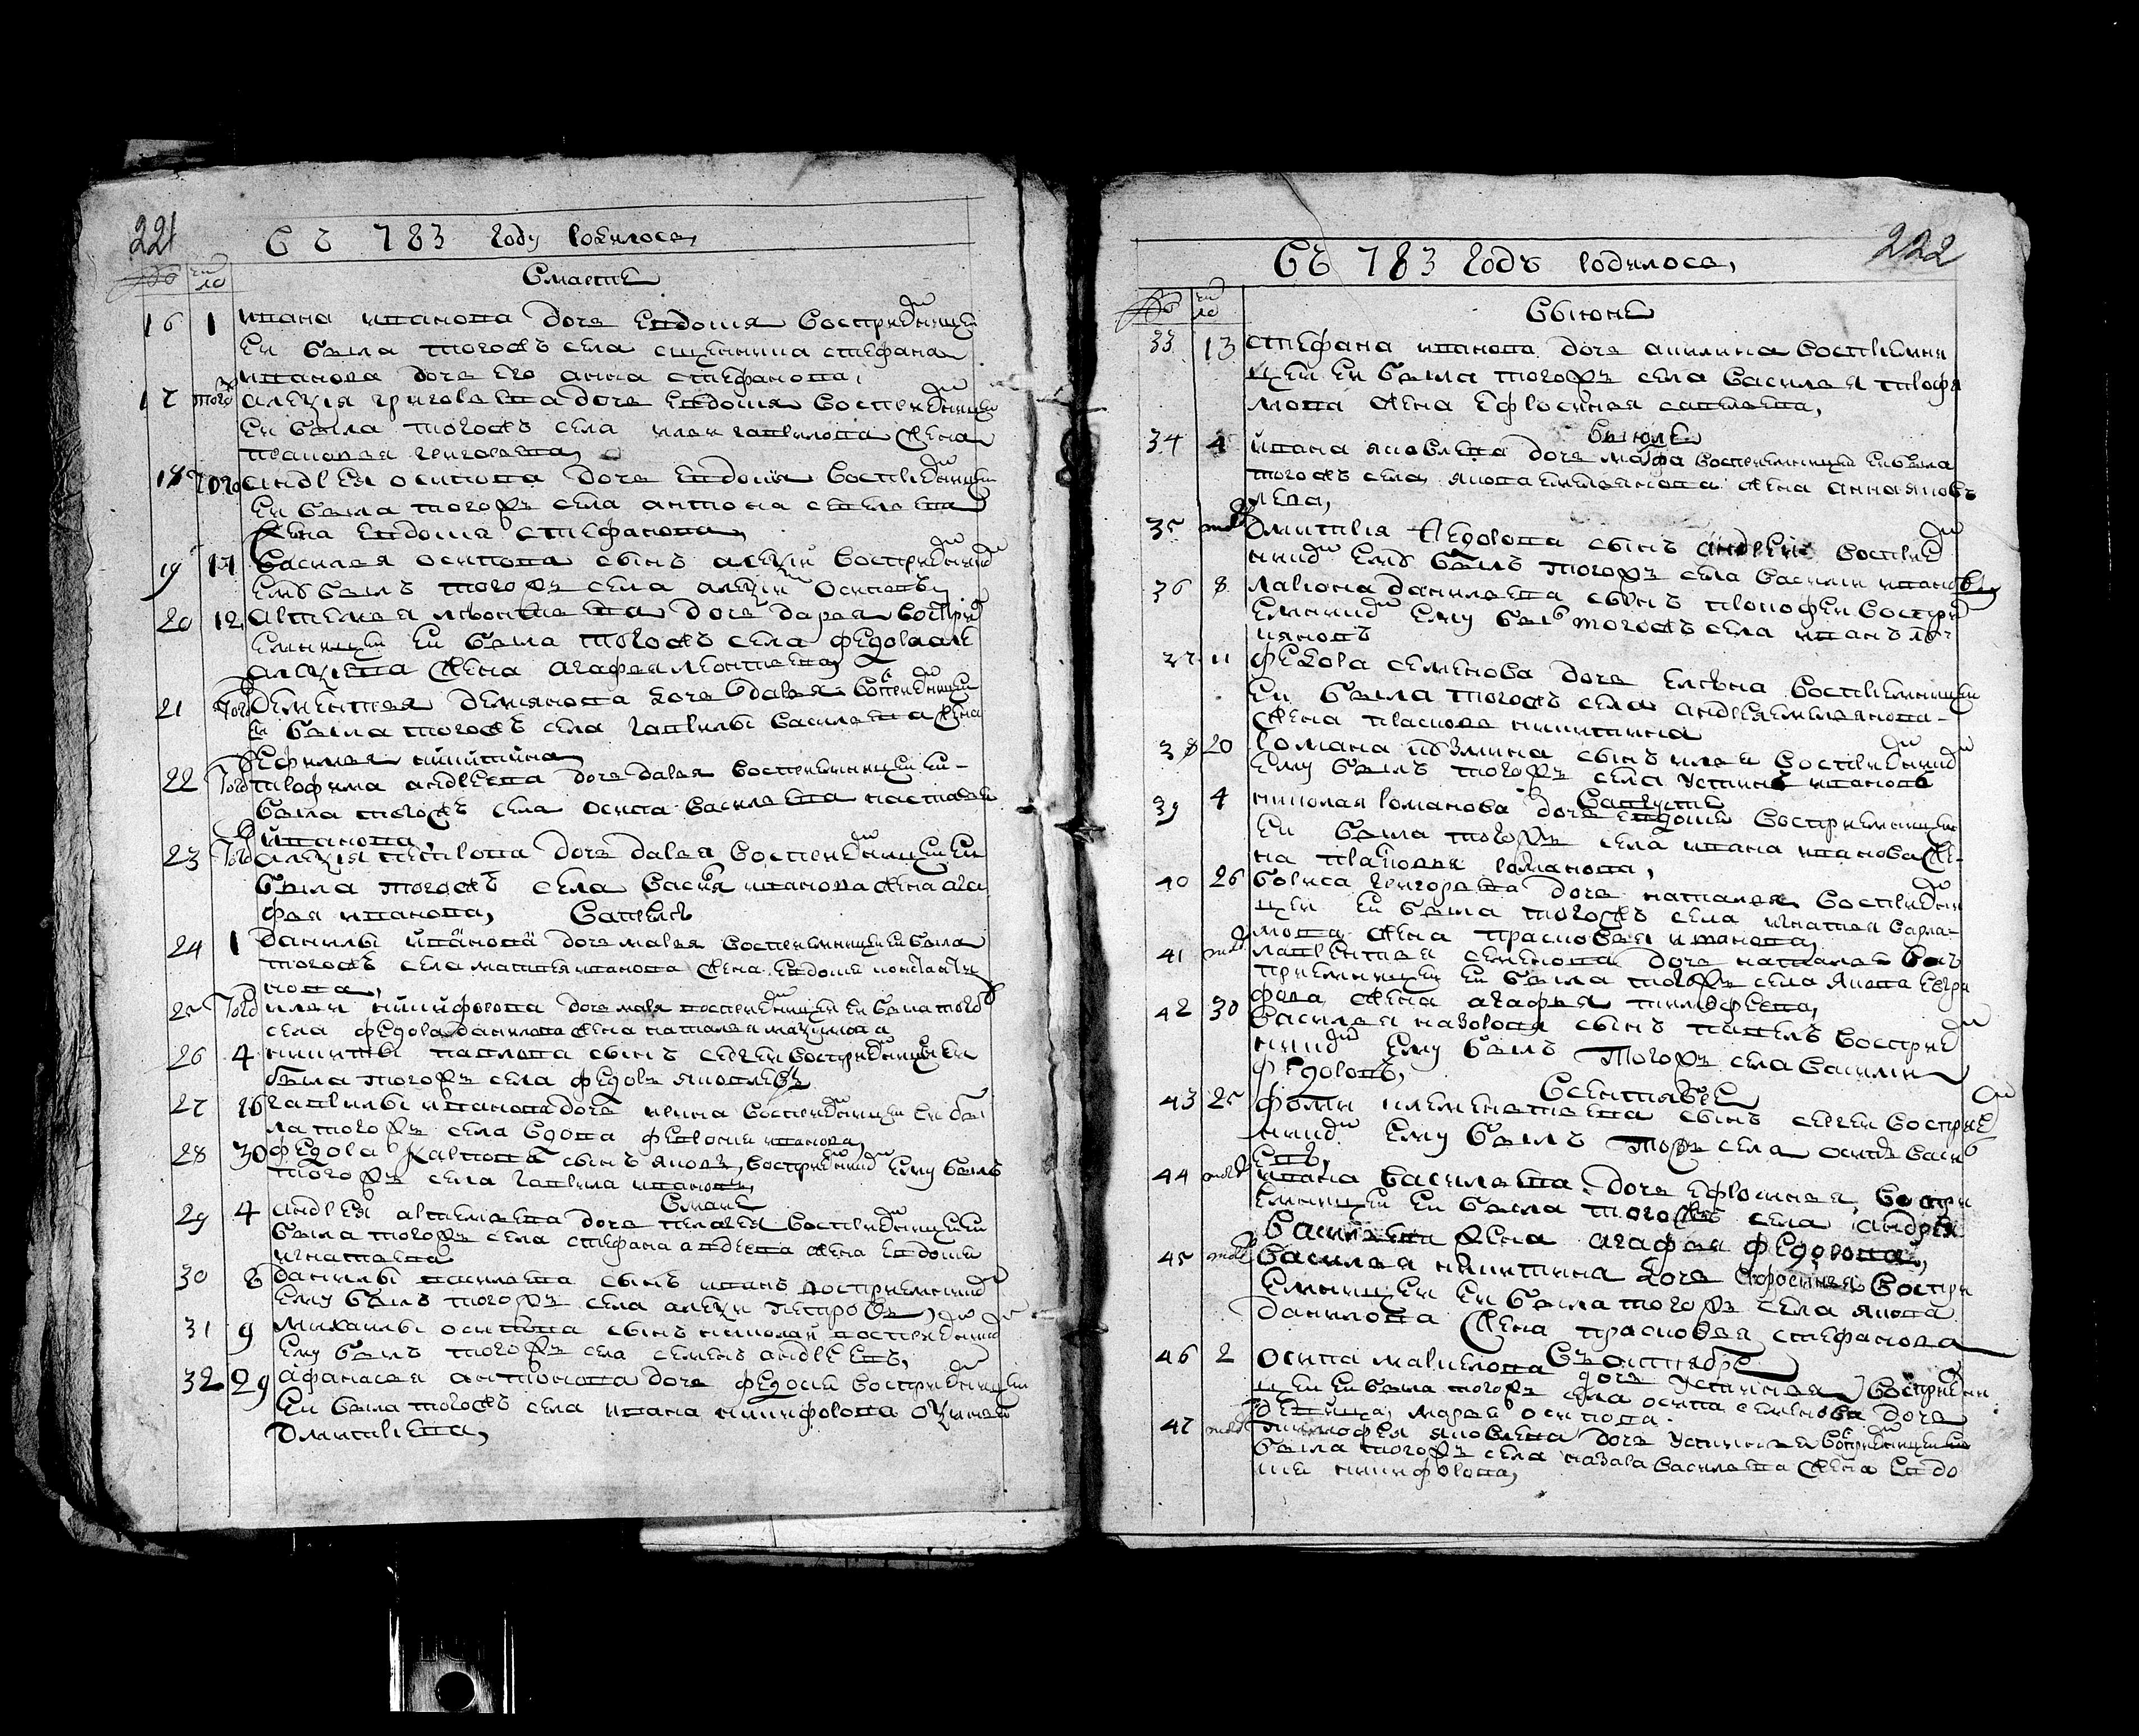 221
Въ 783 году родилося,
№ число
в марте
16 1 ивана иванова дочь евдокия восприемницеи
еи была тогожъ села сщенника стефана
иванова дочь его анна стефанова,
17 того алезия григорьева дочь евдокия восприемницеи
еи была тогожъ села ильи гаврилова жена
прасковья григорьева,
18 того андрея осипова дочь евдокия восприемницеи
еи была тогожъ села антона савельева
жена евдокия стефанова,
19 11 василья осипова сынъ алезеи восприемникомъ
ему былъ тогожъ села алезеи осиповъ,
20 12 артемья леонтьева дочь дарья воспри
емницеи еи была тогожъ села федора але
алезиева жена агафья леонтьева,
21 того дементья демянова дочь дарья восприемницеи
еи была тогожъ села гаврилы васильева жена
ефимья никитина
22 того трофима андреева дочь дарья восприемницеи еи
была тогожъ села осипа васильева настасья
иванова
23 того алезия петрова дочь дарья восприемницеи еи
была тогожъ села василья иванова жена ага
фья иванова, в апреле
24 1 данилы иванова дочь марья восприемницеи еи была
тогожъ села матвея иванова жена евдокия константи
нова,
25 того ильи никифорова дочь марья восприемницеи еи была тогожъ
села федора данилова жена наталья мазимова
26 4 никиты павлова сынъ сергеи восприемницеи еи
была тогожъ села федоръ яковлевъ
27 16 гаврилы иванова дочь ирина восприемницеи еи бы
ла тогожъ села федосия иванова,
28 30 федора карпова сынъ яковъ, восприемникомъ ему былъ
тогожъ села гаврила ивановъ,
в мае
29 4 андрея артемьева дочь пелагея восприемницеи еи
была тогожъ села стефана авдеева жена евдокия
игнатьева
30 6 данилы васильева сынъ иванъ восприемникомъ
ему былъ тогожъ села алезеи петровъ,
31 9 михаилы осипова сынъ николаи восприемникомъ
ему былъ тогожъ села семенъ андреевъ,
32 29 афанасья антонова дочь федосия восприемницеи
еи была тогожъ села ивана никифорова
дмитриева,
222
Въ 783 годъ родилося,
№ число
в июне
33 13 стефана иванова дочь акилина восприемни
цеи еи была тогожъ села василья трофи
мова жена ефросинья савельева,
в июле
34 4 ивана яковлева дочь марфа восприемницеи еи была
тогожъ села якова емельянова жена анна яков
лева,
35 того дмитрия федорова сынъ андреи восприем
никомъ ему былъ тогожъ села василии ивановъ
36 8 лариона данилева сынъ прокофеи воспри
емникомъ ему былъ тогожъ села иванъ
37 11 федора семенова дочь елена восприемницеи
еи была тогожъ села андрея емельянова
жена прасковья никитина
38 20 романа сынъ илья восприемникомъ
ему былъ тогожъ села устинъ ивановъ
в августе
39 4 николая романова дочь евдокия восприемницеи
еи была тогожъ села ивана иванова же
на прасковья романова,
40 26 бориса григорьева дочь наталья восприемни
цеи еи была тогожъ села игнатья варла
мова жена прасковья иванова,
41 того лаврентья семенова дочь наталья вос
приемницеи еи была тогожъ села якова
жена агафья тимофеева,
42 30 василья назарова сынъ павелъ восприем
никомъ ему былъ тогожъ села василии
федоровъ,
в сентябре
43 25 фомы клементьева сынъ сергеи восприем
никомъ ему былъ тогожъ села осипъ василь
евъ,
44 того ивана васильева дочь ефросинья, воспри
емницеи еи была тогожъ села андрея
васильева жена агафья федорова,
45 того василья никитина дочь ефросинья воспри
емницеи еи была тогожъ села якова
данилова жена прасковья стефанова
въ октябре
46 2 осипа дочь устинья восприемни
цеи еи была тогожъ села осипа семенова дочь
девица, марья осипова.
47 того тимофея яковлева дочь устинья восприемницеи еи
была тогожъ села назара васильева жена евдо
кия никифорова,